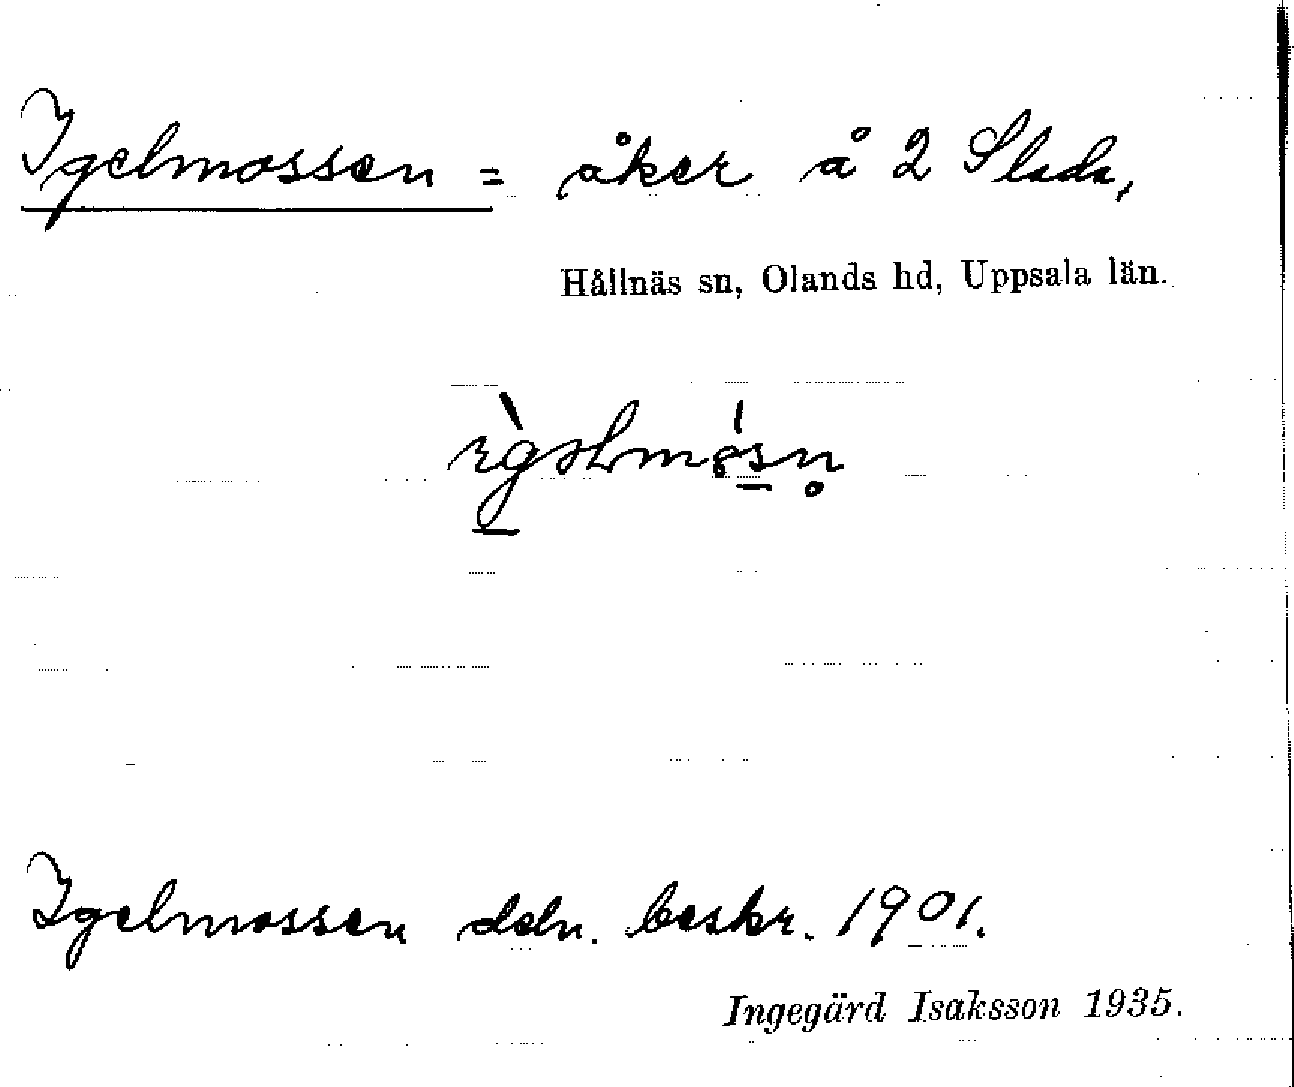 Igelmossen = åker å 2 Slada,
Hållnäs sn, Olands hd, Uppsala län.
Igelmossen deln. beskr. 1901.
Ingegärd Isaksson 1935.